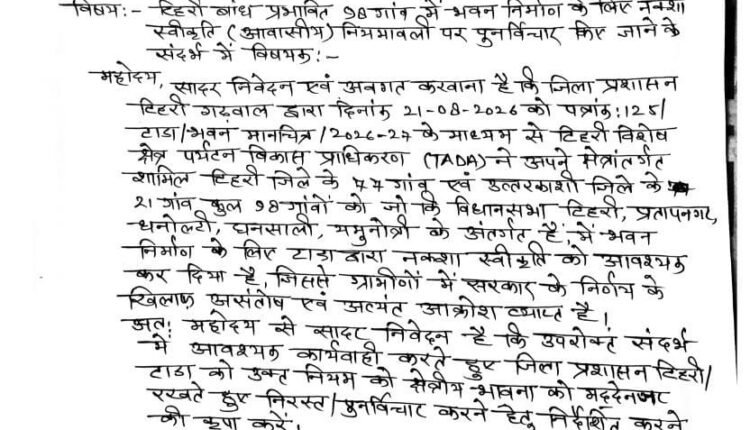 विषय:- टिहरी बांध प्रभावित 98 गांव में भवन निर्माण के लिए नक्शा
स्वीकृति (आवासीय) नियमावली पर पुनर्विचार किए जाने के
संदर्भ में विषयक:-
महोदय, सादर निवेदन एवं अवगत करवाना है कि जिला प्रशासन
टिहरी गढ़वाल द्वारा दिनांक 21-08-2026 को पत्रांक: 125/
टाडा/भवन मानचित्र/2026-27 के माध्यम से टिहरी विशेष
क्षेत्र पर्यटन विकास प्राधिकरण (TADA) ने अपने क्षेत्रांतर्गत
शामिल टिहरी जिले के 77 गांव एवं उत्तरकाशी जिले के
21 गांव कुल 98 गांवों को जो कि विधानसभा टिहरी, प्रतापनगर,
धनोल्टी, घनसाली, यमुनोत्री के अंतर्गत है, में भवन
निर्माण के लिए टाडा द्वारा नक्शा स्वीकृति को आवश्यक
कर दिया है, जिससे ग्रामीणों में सरकार के निर्णय के
खिलाफ असंतोष एवं अत्यंत आक्रोश व्याप्त है।
अत: महोदय से सादर निवेदन है कि उपरोक्त संदर्भ
में आवश्यक कार्यवाही करते हुए जिला प्रशासन टिहरी/
टाडा को उक्त नियम को क्षेत्रीय भावना को मद्देनजर
रखते हुए निरस्त/पुनर्विचार करने हेतु निर्देशित करने
की कृपा करें।